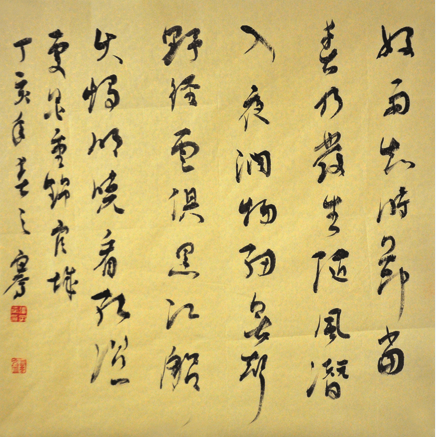 好雨知時節當
春乃發生隨風潛
入夜潤物細無聲
野徑雲俱黑江船
火獨明曉看紅濕
處花重錦官城
丁亥年春之